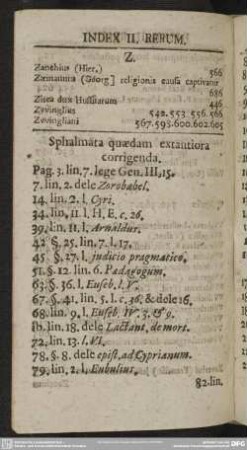 INDEX II. RERUM.
Z.
Zanchius (Hier.) 566
Zientaurra (Georg) religionis causa captivatur
686
Zisca dux Hussitarum 446
Zvinglius 542.553.556.566
Zvingliani 567.598.600.602.605
Sphalmata quædam extantiora
corrigenda.
Pag. 3. lin. 7. lege Gen. III, 15.
7. lin. 2. dele Zorobabel.
14. lin. 2. l. Cyri.
34. lin, 11 l. H. E. c. 26.
39. lin. 11. l. Arnaldus.
42 §. 25. lin. 7 l. 17.
45 §. 27. l. judicio pragmatico.
51. §. 12. lin. 6. Pædagogum.
63. §. 36. l. Euseb. l. V.
67. §. 41. lin. 5. l. c. 36. & dele 16.
68. lin. 9. l. Euseb. IV. 3. & 9.
Ib. lin. 18. dele Lactant. de mort.
72. lin. 13. l. VI.
78. §. 8. dele epist. ad Cyprianum.
79. lin. 2. l. Eubulius.
82. lin.